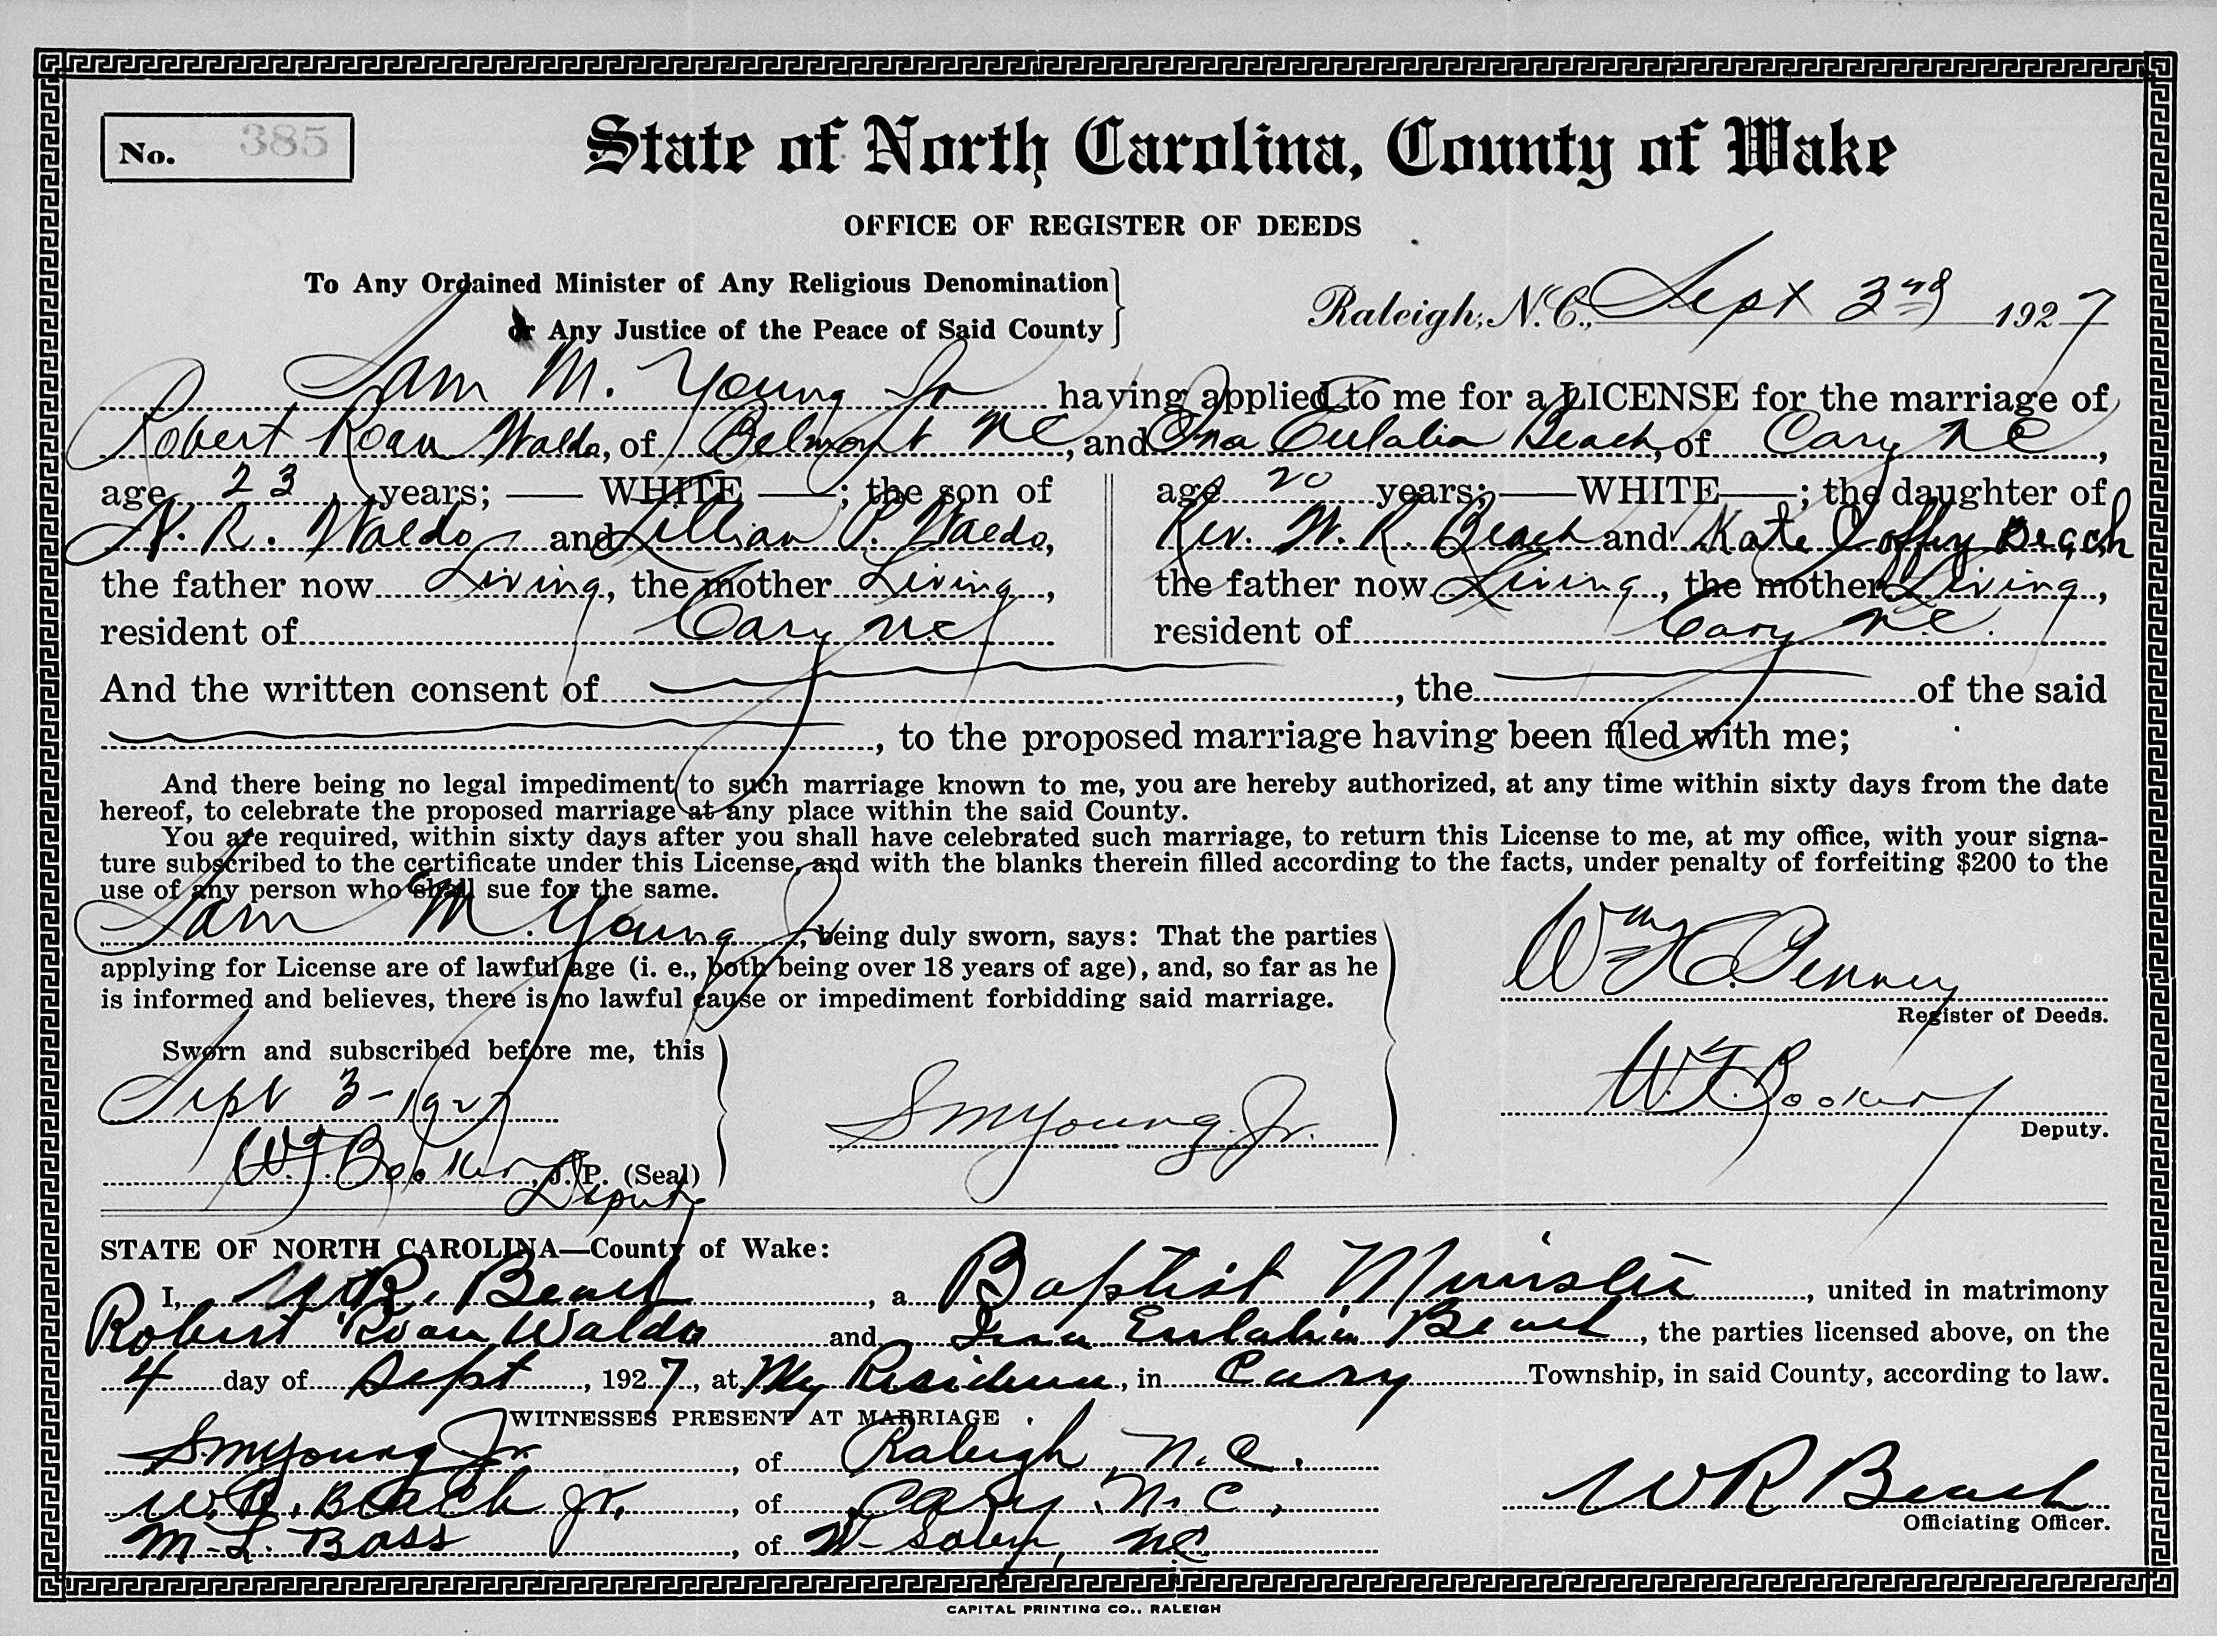 No. 385
State of North Carolina, County of Wake
OFFICE OF REGISTER OF DEEDS
To Any Ordained Minister of Any Religious Denomination
or Any Justice of the Peace of Said County
Raleigh, N. C., Sept 3rd 1927
Sam M. Young Jr having applied to me for a LICENSE for the marriage of
Robert Roan Waldo, of Belmont NC, and Ina Eulalia Beach, of Cary NC,
age 23 years; WHITE; the son of
N. R. Waldo and Lillian P. Waldo,
the father now Living, the mother Living,
resident of Cary NC
age 20 years; WHITE; the daughter of
Rev. W. R. Beach and Kate Coffey Beach
the father now Living, the mother Living,
resident of Cary N.C.
And the written consent of , the of the said
, to the proposed marriage having been filed with me;
And there being no legal impediment to such marriage known to me, you are hereby authorized, at any time within sixty days from the date
hereof, to celebrate the proposed marriage at any place within the said County.
You are required, within sixty days after you shall have celebrated such marriage, to return this License to me, at my office, with your signa-
ture subscribed to the certificate under this License, and with the blanks therein filled according to the facts, under penalty of forfeiting $200 to the
use of any person who shall sue for the same.
Sam M. Young Jr, being duly sworn, says: That the parties
applying for License are of lawful age (i. e., both being over 18 years of age), and, so far as he
is informed and believes, there is no lawful cause or impediment forbidding said marriage.
Sworn and subscribed before me, this
Sept 3-1927
W.T. Booker, J. P. (Seal)
Deputy
S M Young. Jr.
Wm H. Penny
Register of Deeds.
W. T. Booker
Deputy.
STATE OF NORTH CAROLINA—County of Wake:
I, W.R. Beach, a Baptist Minister, united in matrimony
Robert Roan Waldo and Ina Eulalia Beach, the parties licensed above, on the
4 day of Sept, 1927, at My Residence, in Cary Township, in said County, according to law.
WITNESSES PRESENT AT MARRIAGE
S.M Young Jr., of Raleigh, N. C.
W. R. Beach Jr., of Cary, N. C,
M. L. Bass, of W-Salem, NC.
W R Beach
Officiating Officer.
CAPITAL PRINTING CO., RALEIGH